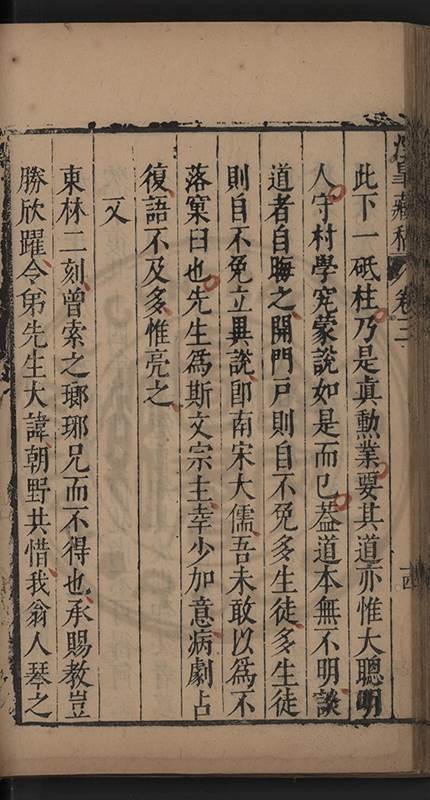 此下一砥柱乃是真勳業要其道亦惟大聰明
人守村學究蒙說如是而已葢道本無不明談
道者自晦之開門戶則自不免多生徒多生徒
則自不免立異說卽南宋大儒吾未敢以為不
落窠臼也先生爲斯文宗主幸少加意病劇占
復語不及多惟亮之
又
東林二刻曾索之瑯琊兄而不得也承賜教豈
勝欣躍令弟先生大諱朝野共惜我翁人琴之